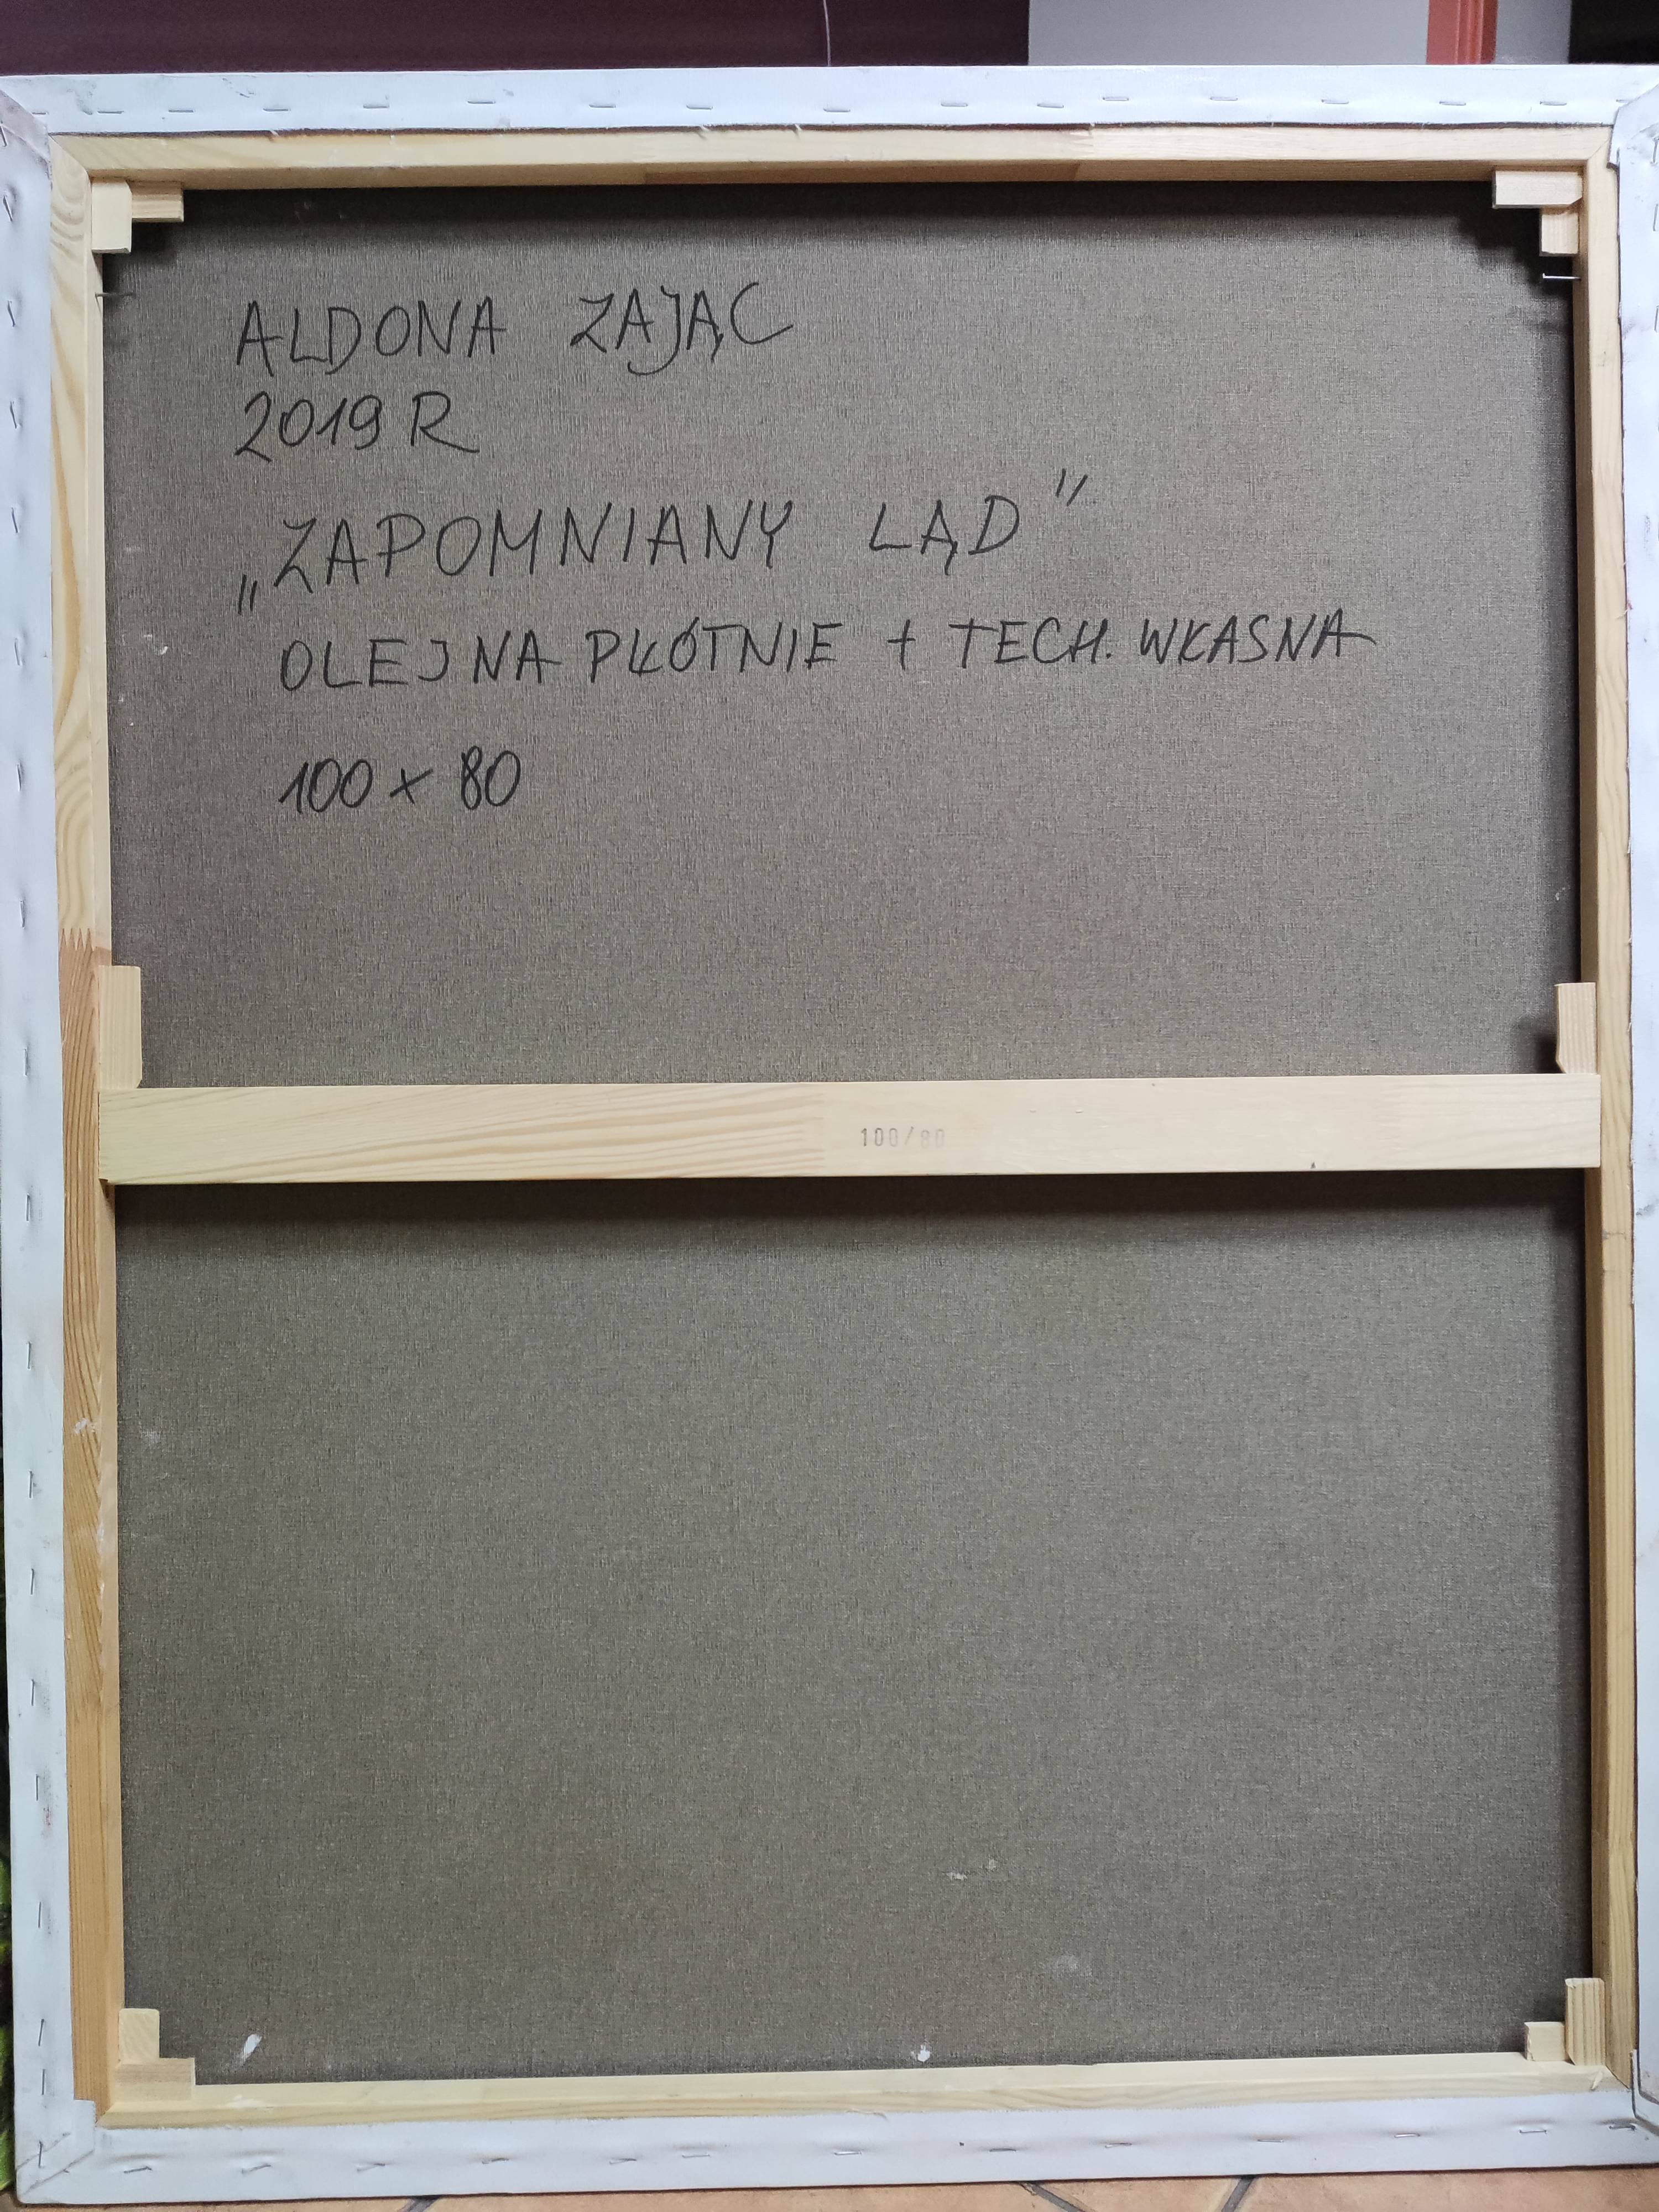 ALDONA ZAJĄC
2019 R
„ZAPOMNIANY LĄD”
OLEJ NA PŁÓTNIE + TECH. WŁASNA
100 x 80
100/80